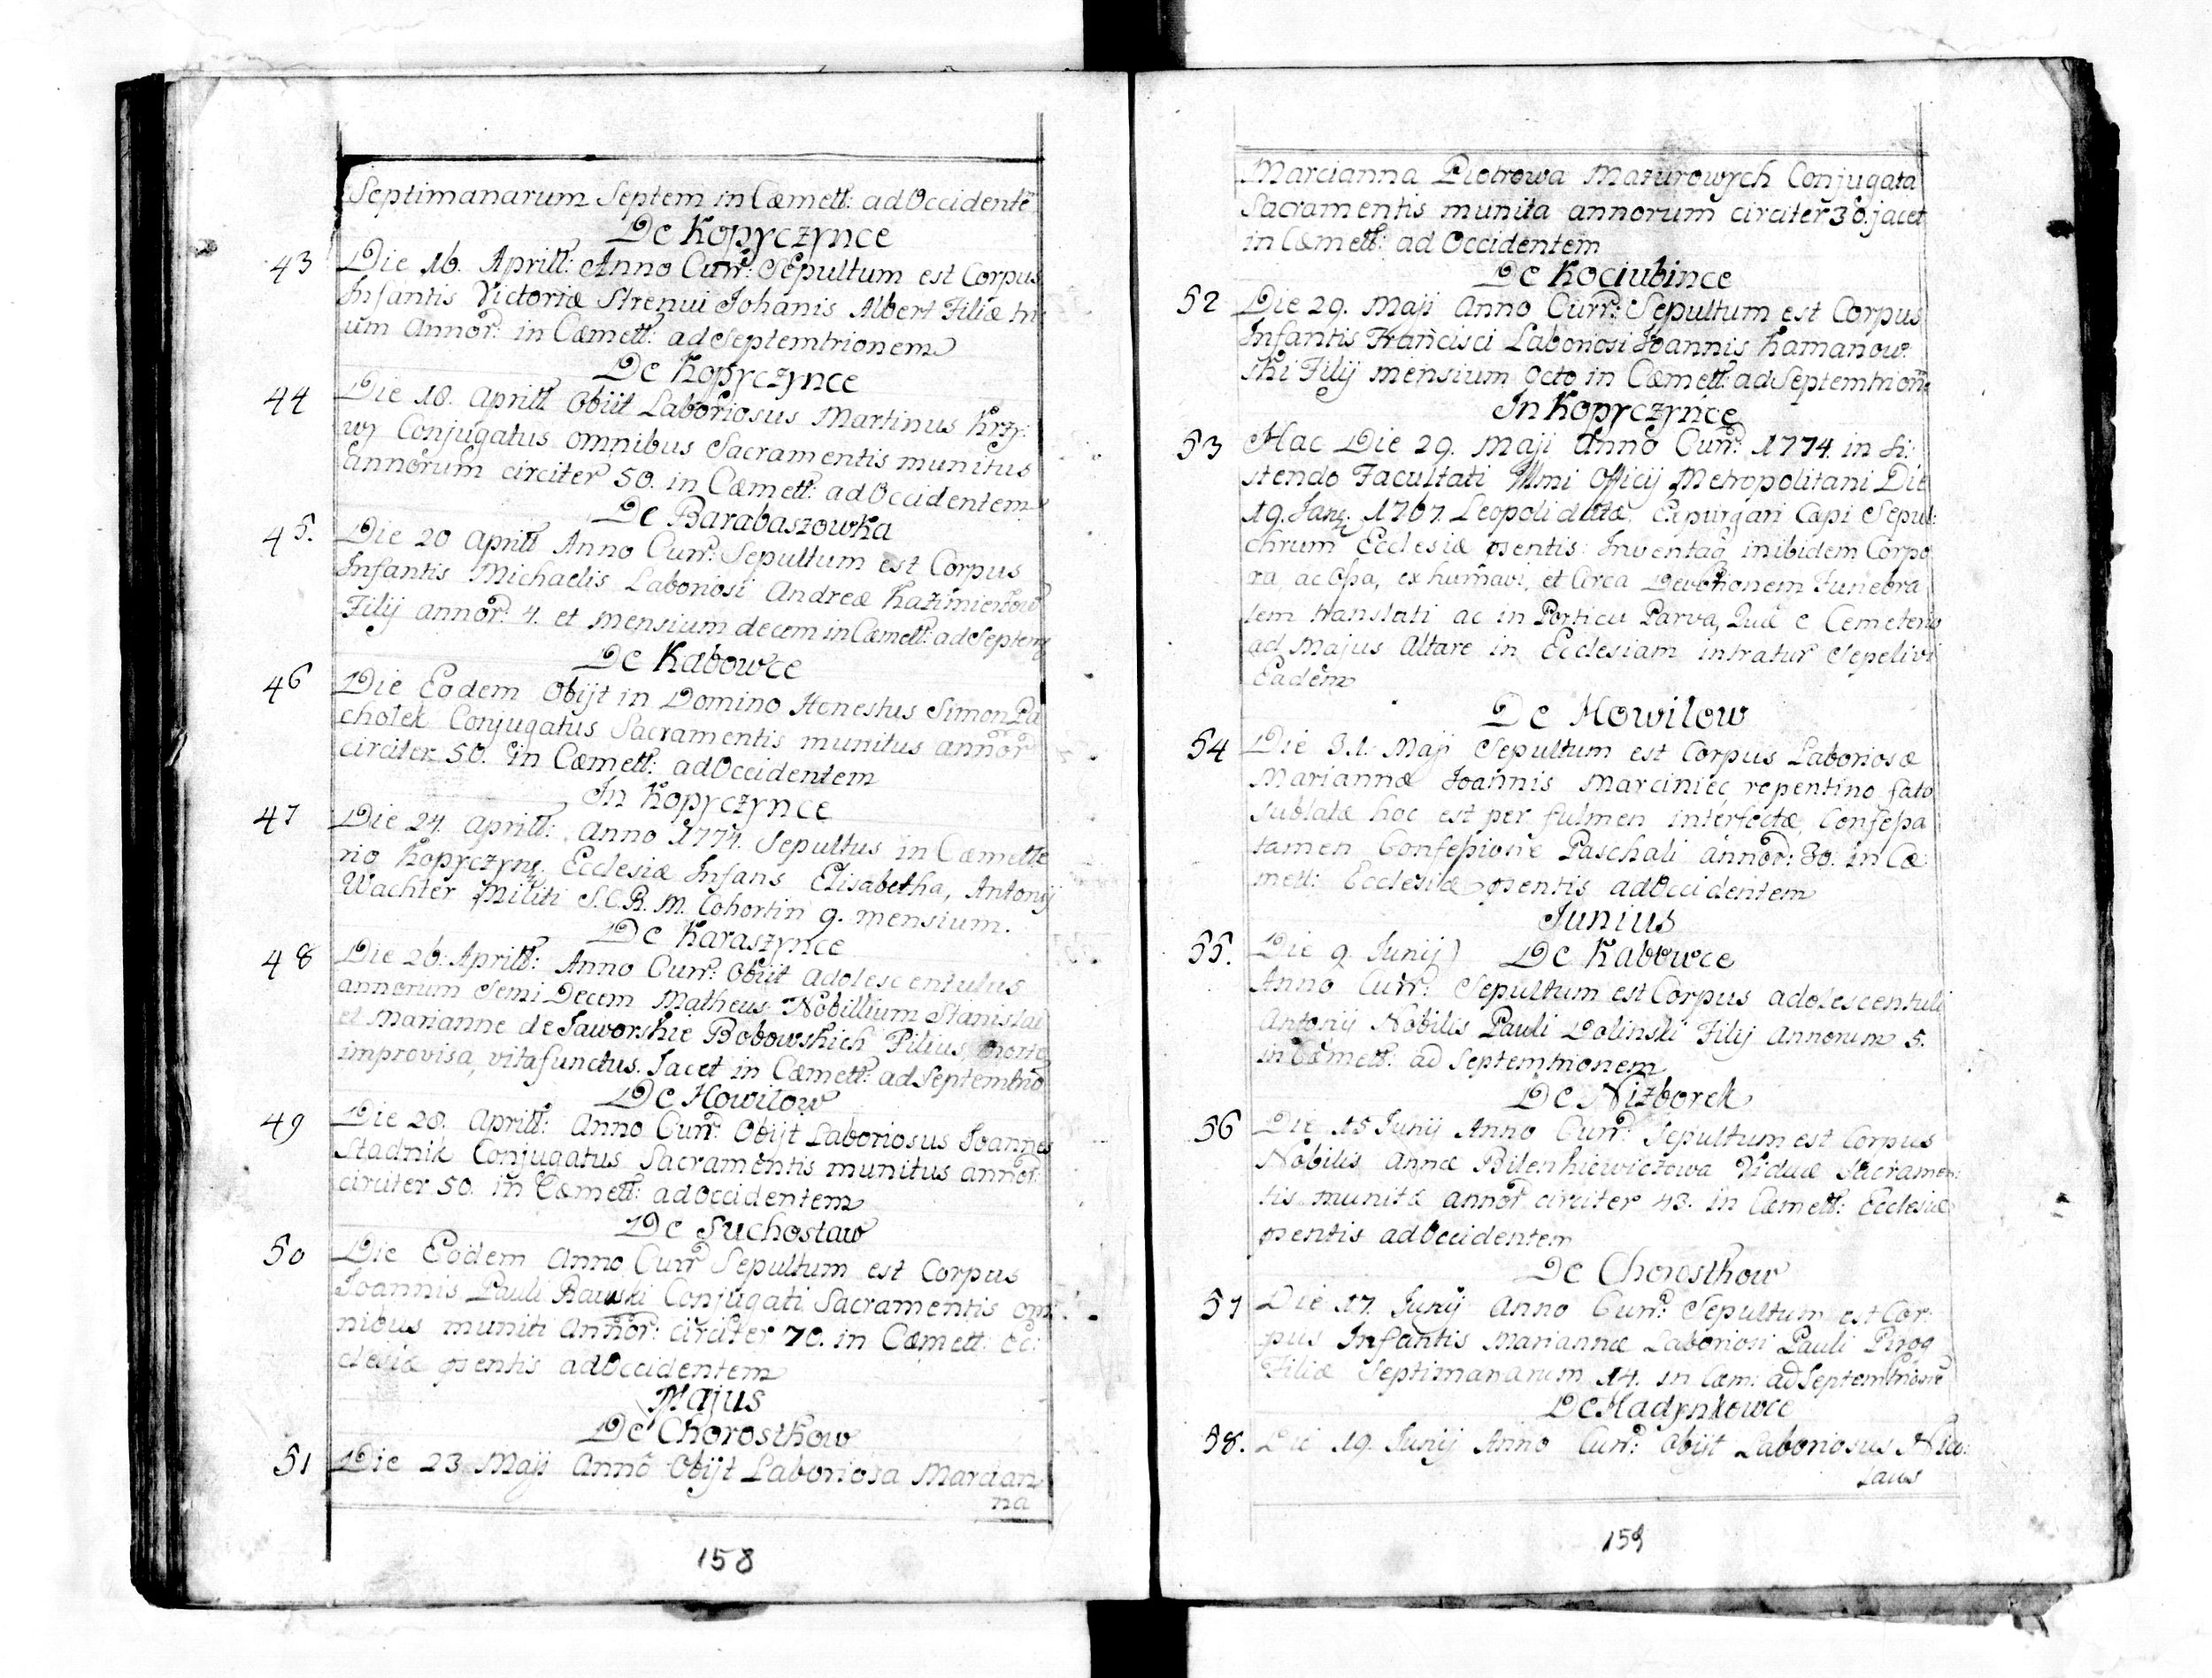 Septimanarum Septem in Cæmett: ad Occidentē
De Kopyczynce
43 Die 16. Aprill: Anno Curr: Sepultum est Corpus
Infantis Victoriæ Strenui Johanis Albert Filiæ tri
um Annor: in Cæmett: ad Septemtrionem
De Kopyczynce
44 Die 18. Aprill Obiit Laboriosus Martinus Krzy:
wy Conjugatus omnibus Sacramentis munitus
annorum circiter 50. in Cæmett: ad Occidentem
De Barabaszowka
45. Die 20 Aprill Anno Curr: Sepultum est Corpus
Infantis Michaelis Laboriosi Andreæ Kazimierzow
Filij annor: 4. et mensium decem in Cæmett: ad Septem
De Kabowce
46 Die Eodem Obijt in Domino Honestus Simon Pa
cholek Conjugatus Sacramentis munitus annor
circiter 50. in Cæmett: ad Occidentem
In Kopyczynce
47 Die 24. Aprill: Anno 1774. Sepultus in Cæmette
rio Kopyczyn: Ecclesiæ Infans Elisabetha, Antonij
Wachter Militi S.C.R.M. Cohortin 9. mensium.
De Karaszynce
48 Die 26. Aprill: Anno Curr: Obiit adolescentulus
annorum Semi Decem Matheus Nobillium Stanislai
et Marianne de Jaworskie Bobowskich Filius morte
improvisa, vita functus. Jacet in Cæmett: ad Septemtrio
De Howilow
49 Die 28. Aprill: Anno Curr: Obijt Laboriosus Joannes
Stadnik Conjugatus Sacramentis munitus annor:
circiter 50. in Cæmett: ad Occidentem
De Suchostaw
50 Die Eodem Anno Curr Sepultum est Corpus
Joannis Pauli Rawski Conjugati Sacramentis om:
nibus muniti Annor: circiter 70. in Cæmett: Ec:
clesiæ psentis ad Occidentem
Majus
De Chorostkow
51 Die 23 Maji Anno Obijt Laboriosa Marcian
na
158
Marcianna Piotrowa Mazurowych Conjugata
Sacramentis munita annorum circiter 30. jacet
in Cæmett: ad Occidentem
De Kociubince
52 Die 29. Maji Anno Curr: Sepultum est Corpus
Infantis Francisci Laboriosi Joannis Kamanow:
ski Filij mensium Octo in Cæmett: ad Septemtrion
In Kopyczynce
53 Hac Die 29. Maji Anno Curr: 1774. in si:
stendo Facultati Illmi Officij Metropolitani Die
19. Jan: 1767. Leopoli datæ. Expurgari Capi Sepul:
chrum Ecclesiæ psentis: Inventaq inibidem Corpo
ra, ac Ossa, exhumavi, et Circa Devotionem Funebra
lem translati ac in Porticu Parva, Quâ e Cemeterio
ad Majus Altare in Ecclesiam intratur Sepelivi
Eadem
De Howilow
54 Die 31. Maji Sepultum est Corpus Laboriosæ
Mariannæ Joannis Marciniec repentino fato
sublatæ hoc est per fulmen interfectæ, Confessa
tamen Confessione Paschali annor: 30. in Cæ
mett: Ecclesiæ psentis ad Occidentem
Junius
55. Die 9. Junij De Kabowce
Anno Curr: Sepultum est Corpus adolescentuli
Antonij Nobilis Pauli Dolinski Filij Annorum 5.
in Cæmett: ad Septemtrionem
De Nizborek
56 Die 15 Junij Anno Curr: Sepultum est Corpus
Nobilis Annæ Bilenkiewiczowa Viduæ Sacramen:
tis munitæ annor circiter 43. in Cæmett: Ecclesiæ
psentis ad Occidentem
De Chorostkow
57 Die 17. Junij Anno Curr: Sepultum est Cor:
pus Infantis Mariannæ Laboriosi Pauli Pirog
Filiæ Septimanarum 14. in Cæm: ad Septemtrione
De Hadynkowce
58. Die 19. Junij Anno Curr: Obijt Laboriosus Nico:
laus
159